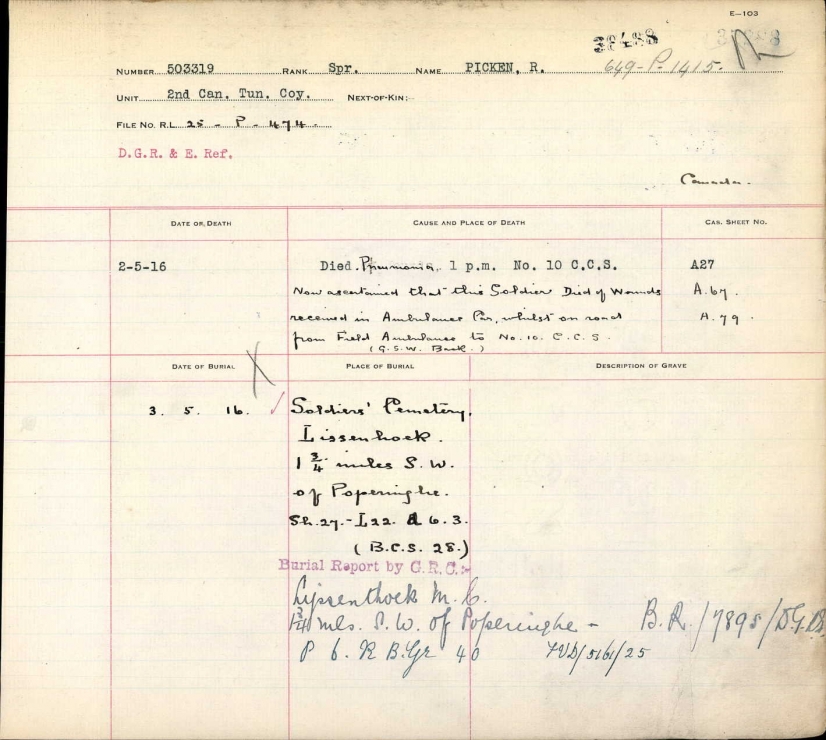 E-103
649-P-1415.
NUMBER 503319 RANK Spr. NAME PICKEN, R.
UNIT 2nd Can. Tun. Coy. NEXT-OF-KIN:-
FILE NO. R.L. 25 - P - 474 -
D.G.R. & E. Ref.
Canada.
DATE OF DEATH CAUSE AND PLACE OF DEATH CAS. SHEET NO.
2-5-16 Died. Pneumonia, 1 p.m. No. 10 C.C.S. A27
Now ascertained that this Soldier Died of Wounds A.67.
received in Ambulance Car, whilst on road A.79
from Field Ambulance to No. 10. C.C.S.
(G.S.W. Back.)
DATE OF BURIAL PLACE OF BURIAL DESCRIPTION OF GRAVE
3. 5. 16. Soldiers' Cemetery,
Lissenhoek.
1 3/4 miles S.W.
of Poperinghe.
Sh. 27.-L22. d 6.3.
(B.C.S. 28.)
Burial Report by G.R.C:-
Lijssenthoek M.C.
1 3/4 mls. S.W. of Poperinghe - B.R./7895/D.G.
P 6. R B. Gr 40 /5161/25